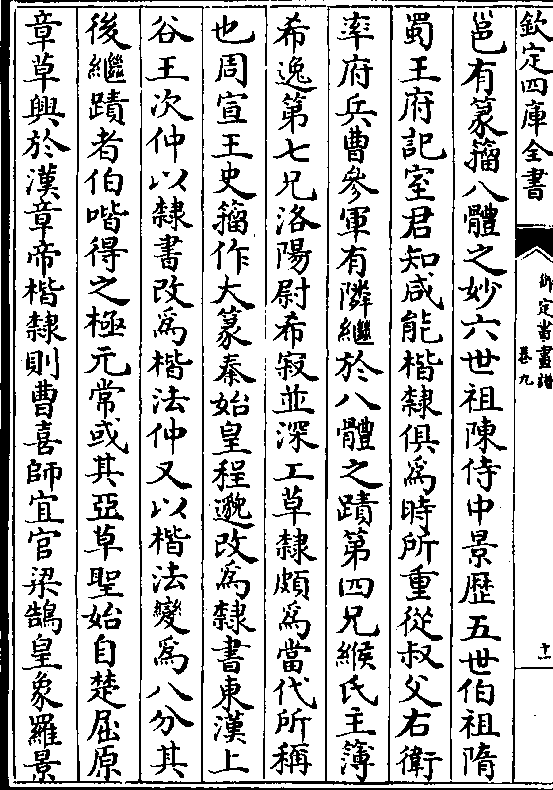 欽定四庫全書
御定書畫譜
卷九
十一
邕有篆籀八體之妙六世祖陳侍中景歷五世伯祖隋
蜀王府記室君知咸能楷隸俱為時所重從叔父右衛
率府兵曹參軍有隣繼於八體之蹟第四兄緱氏主簿
希逸第七兄洛陽尉希寂並深工草隸頗為當代所稱
也周宣王史籀作大篆秦始皇程邈改為隸書東漢上
谷王次仲以隸書改為楷法仲又以楷法變為八分其
後繼蹟者伯喈得之極元常或其亞草聖始自楚屈原
章草興於漢章帝楷隸則曹喜師宜官梁鵠皇象羅景